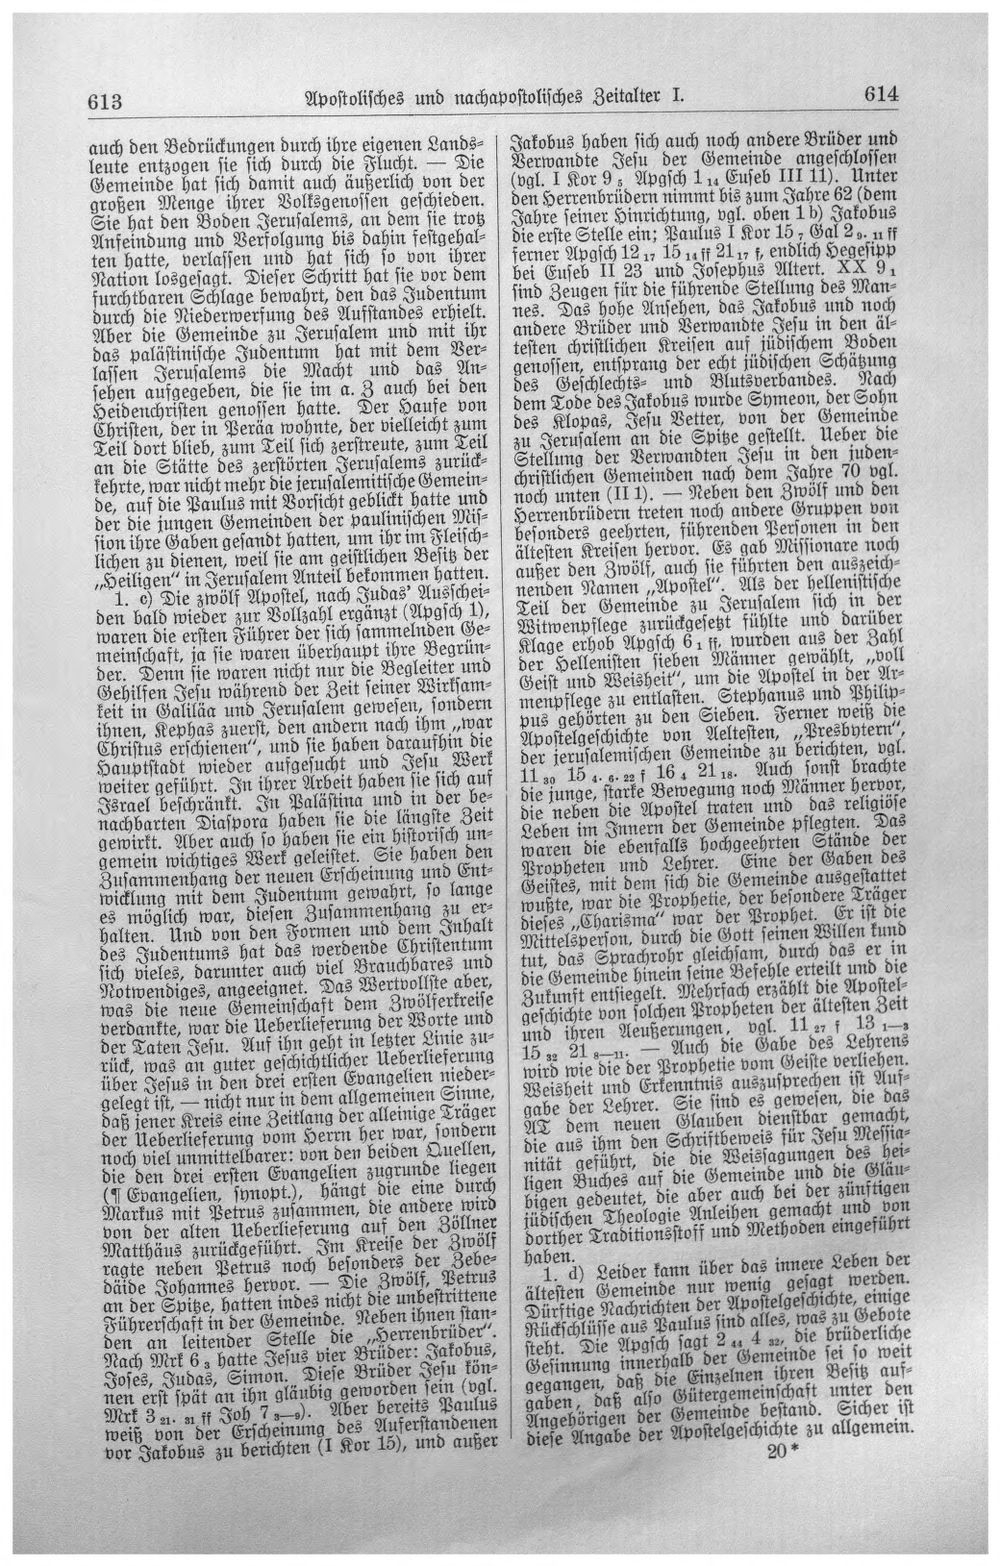 613
Apostolisches und nachapostolisches Zeitalter I.
614
auch den Bedrückungen durch ihre eigenen Lands-
leute entzogen sie sich durch die Flucht. — Die
Gemeinde hat sich damit auch äußerlich von der
großen Menge ihrer Volksgenossen geschieden.
Sie hat den Boden Jerusalems, an dem sie trotz
Anfeindung und Verfolgung bis dahin festgehal-
ten hatte, verlassen und hat sich so von ihrer
Nation losgesagt. Dieser Schritt hat sie vor dem
furchtbaren Schlage bewahrt, den das Judentum
durch die Niederwerfung des Aufstandes erhielt.
Aber die Gemeinde zu Jerusalem und mit ihr
das palästinische Judentum hat mit dem Ver-
lassen Jerusalems die Macht und das An-
sehen aufgegeben, die sie im a. Z auch bei den
Heidenchristen genossen hatte. Der Haufe von
Christen, der in Peräa wohnte, der vielleicht zum
Teil dort blieb, zum Teil sich zerstreute, zum Teil
an die Stätte des zerstörten Jerusalems zurück-
kehrte, war nicht mehr die jerusalemitische Gemein-
de, auf die Paulus mit Vorsicht geblickt hatte und
der die jungen Gemeinden der paulinischen Mis-
sion ihre Gaben gesandt hatten, um ihr im Fleisch-
lichen zu dienen, weil sie am geistlichen Besitz der
„Heiligen“ in Jerusalem Anteil bekommen hatten.
1. c) Die zwölf Apostel, nach Judas' Ausschei-
den bald wieder zur Vollzahl ergänzt (Apgsch 1),
waren die ersten Führer der sich sammelnden Ge-
meinschaft, ja sie waren überhaupt ihre Begrün-
der. Denn sie waren nicht nur die Begleiter und
Gehilfen Jesu während der Zeit seiner Wirksam-
keit in Galiläa und Jerusalem gewesen, sondern
ihnen, Kephas zuerst, den andern nach ihm „war
Christus erschienen“, und sie haben daraufhin die
Hauptstadt wieder aufgesucht und Jesu Werk
weiter geführt. In ihrer Arbeit haben sie sich auf
Israel beschränkt. In Palästina und in der be-
nachbarten Diaspora haben sie die längste Zeit
gewirkt. Aber auch so haben sie ein historisch un-
gemein wichtiges Werk geleistet. Sie haben den
Zusammenhang der neuen Erscheinung und Ent-
wicklung mit dem Judentum gewahrt, so lange
es möglich war, diesen Zusammenhang zu er-
halten. Und von den Formen und dem Inhalt
des Judentums hat das werdende Christentum
sich vieles, darunter auch viel Brauchbares und
Notwendiges, angeeignet. Das Wertvollste aber,
was die neue Gemeinschaft dem Zwölferkreise
verdankte, war die Ueberlieferung der Worte und
der Taten Jesu. Auf ihn geht in letzter Linie zu-
rück, was an guter geschichtlicher Ueberlieferung
über Jesus in den drei ersten Evangelien nieder-
gelegt ist, — nicht nur in dem allgemeinen Sinne,
daß jener Kreis eine Zeitlang der alleinige Träger
der Ueberlieferung vom Herrn her war, sondern
noch viel unmittelbarer: von den beiden Quellen,
die den drei ersten Evangelien zugrunde liegen
(¶ Evangelien, synopt.), hängt die eine durch
Markus mit Petrus zusammen, die andere wird
von der alten Ueberlieferung auf den Zöllner
Matthäus zurückgeführt. Im Kreise der Zwölf
ragte neben Petrus noch besonders der Zebe-
däide Johannes hervor. — Die Zwölf, Petrus
an der Spitze, hatten indes nicht die unbestrittene
Führerschaft in der Gemeinde. Neben ihnen stan-
den an leitender Stelle die „Herrenbrüder“.
Nach Mrk 6 3 hatte Jesus vier Brüder: Jakobus,
Joses, Judas, Simon. Diese Brüder Jesu kön-
nen erst spät an ihn gläubig geworden sein (vgl.
Mrk 3 21. 31 ff Joh 7 3—9). Aber bereits Paulus
weiß von der Erscheinung des Auferstandenen
vor Jakobus zu berichten (I Kor 15), und außer
Jakobus haben sich auch noch andere Brüder und
Verwandte Jesu der Gemeinde angeschlossen
(vgl. I Kor 9 5 Apgsch 1 14 Euseb III 11). Unter
den Herrenbrüdern nimmt bis zum Jahre 62 (dem
Jahre seiner Hinrichtung, vgl. oben 1 b) Jakobus
die erste Stelle ein; Paulus I Kor 15 7 Gal 2 9. 11 ff
ferner Apgsch 12 17 15 14 ff 21 17 f, endlich Hegesipp
bei Euseb II 23 und Josephus Altert. XX 9 1
sind Zeugen für die führende Stellung des Man-
nes. Das hohe Ansehen, das Jakobus und noch
andere Brüder und Verwandte Jesu in den äl-
testen christlichen Kreisen auf jüdischem Boden
genossen, entsprang der echt jüdischen Schätzung
des Geschlechts- und Blutsverbandes. Nach
dem Tode des Jakobus wurde Symeon, der Sohn
des Klopas, Jesu Vetter, von der Gemeinde
zu Jerusalem an die Spitze gestellt. Ueber die
Stellung der Verwandten Jesu in den juden-
christlichen Gemeinden nach dem Jahre 70 vgl.
noch unten (II 1). — Neben den Zwölf und den
Herrenbrüdern treten noch andere Gruppen von
besonders geehrten, führenden Personen in den
ältesten Kreisen hervor. Es gab Missionare noch
außer den Zwölf, auch sie führten den auszeich-
nenden Namen „Apostel“. Als der hellenistische
Teil der Gemeinde zu Jerusalem sich in der
Witwenpflege zurückgesetzt fühlte und darüber
Klage erhob Apgsch 6 1 ff, wurden aus der Zahl
der Hellenisten sieben Männer gewählt, „voll
Geist und Weisheit“, um die Apostel in der Ar-
menpflege zu entlasten. Stephanus und Philip-
pus gehörten zu den Sieben. Ferner weiß die
Apostelgeschichte von Aeltesten, „Presbytern“,
der jerusalemischen Gemeinde zu berichten, vgl.
11 30 15 4. 6. 22 f 16 4 21 18. Auch sonst brachte
die junge, starke Bewegung noch Männer hervor,
die neben die Apostel traten und das religiöse
Leben im Innern der Gemeinde pflegten. Das
waren die ebenfalls hochgeehrten Stände der
Propheten und Lehrer. Eine der Gaben des
Geistes, mit dem sich die Gemeinde ausgestattet
wußte, war die Prophetie, der besondere Träger
dieses „Charisma“ war der Prophet. Er ist die
Mittelsperson, durch die Gott seinen Willen kund
tut, das Sprachrohr gleichsam, durch das er in
die Gemeinde hinein seine Befehle erteilt und die
Zukunft entsiegelt. Mehrfach erzählt die Apostel-
geschichte von solchen Propheten der ältesten Zeit
und ihren Aeußerungen, vgl. 11 27 f 13 1—3
15 32 21 8—11. — Auch die Gabe des Lehrens
wird wie die der Prophetie vom Geiste verliehen.
Weisheit und Erkenntnis auszusprechen ist Auf-
gabe der Lehrer. Sie sind es gewesen, die das
AT dem neuen Glauben dienstbar gemacht,
die aus ihm den Schriftbeweis für Jesu Messia-
nität geführt, die die Weissagungen des hei-
ligen Buches auf die Gemeinde und die Gläu-
bigen gedeutet, die aber auch bei der zünftigen
jüdischen Theologie Anleihen gemacht und von
dorther Traditionsstoff und Methoden eingeführt
haben.
1. d) Leider kann über das innere Leben der
ältesten Gemeinde nur wenig gesagt werden.
Dürftige Nachrichten der Apostelgeschichte, einige
Rückschlüsse aus Paulus sind alles, was zu Gebote
steht. Die Apgsch sagt 2 44 4 32, die brüderliche
Gesinnung innerhalb der Gemeinde sei so weit
gegangen, daß die Einzelnen ihren Besitz auf-
gaben, daß also Gütergemeinschaft unter den
Angehörigen der Gemeinde bestand. Sicher ist
diese Angabe der Apostelgeschichte zu allgemein.
20*